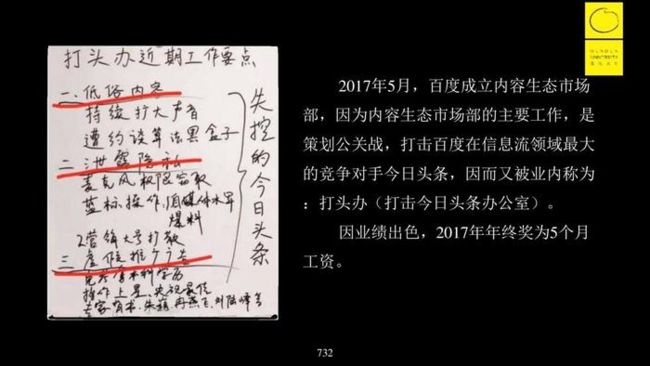 打头办近期工作要点
一、低俗内容
持续扩大声音
遭约谈算法黑盒子
二、泄露隐私
麦克风权限窃取
蓝标操作、自媒体水军
爆料
三、虚假推广广告
失控的今日头条
HUNDUN
UNIVERSITY
2017年5月，百度成立内容生态市场
部，因为内容生态市场部的主要工作，是
策划公关战，打击百度在信息流领域最大
的竞争对手今日头条，因而又被业内称为
：打头办（打击今日头条办公室）。
因业绩出色，2017年年终奖为5个月
工资。
732